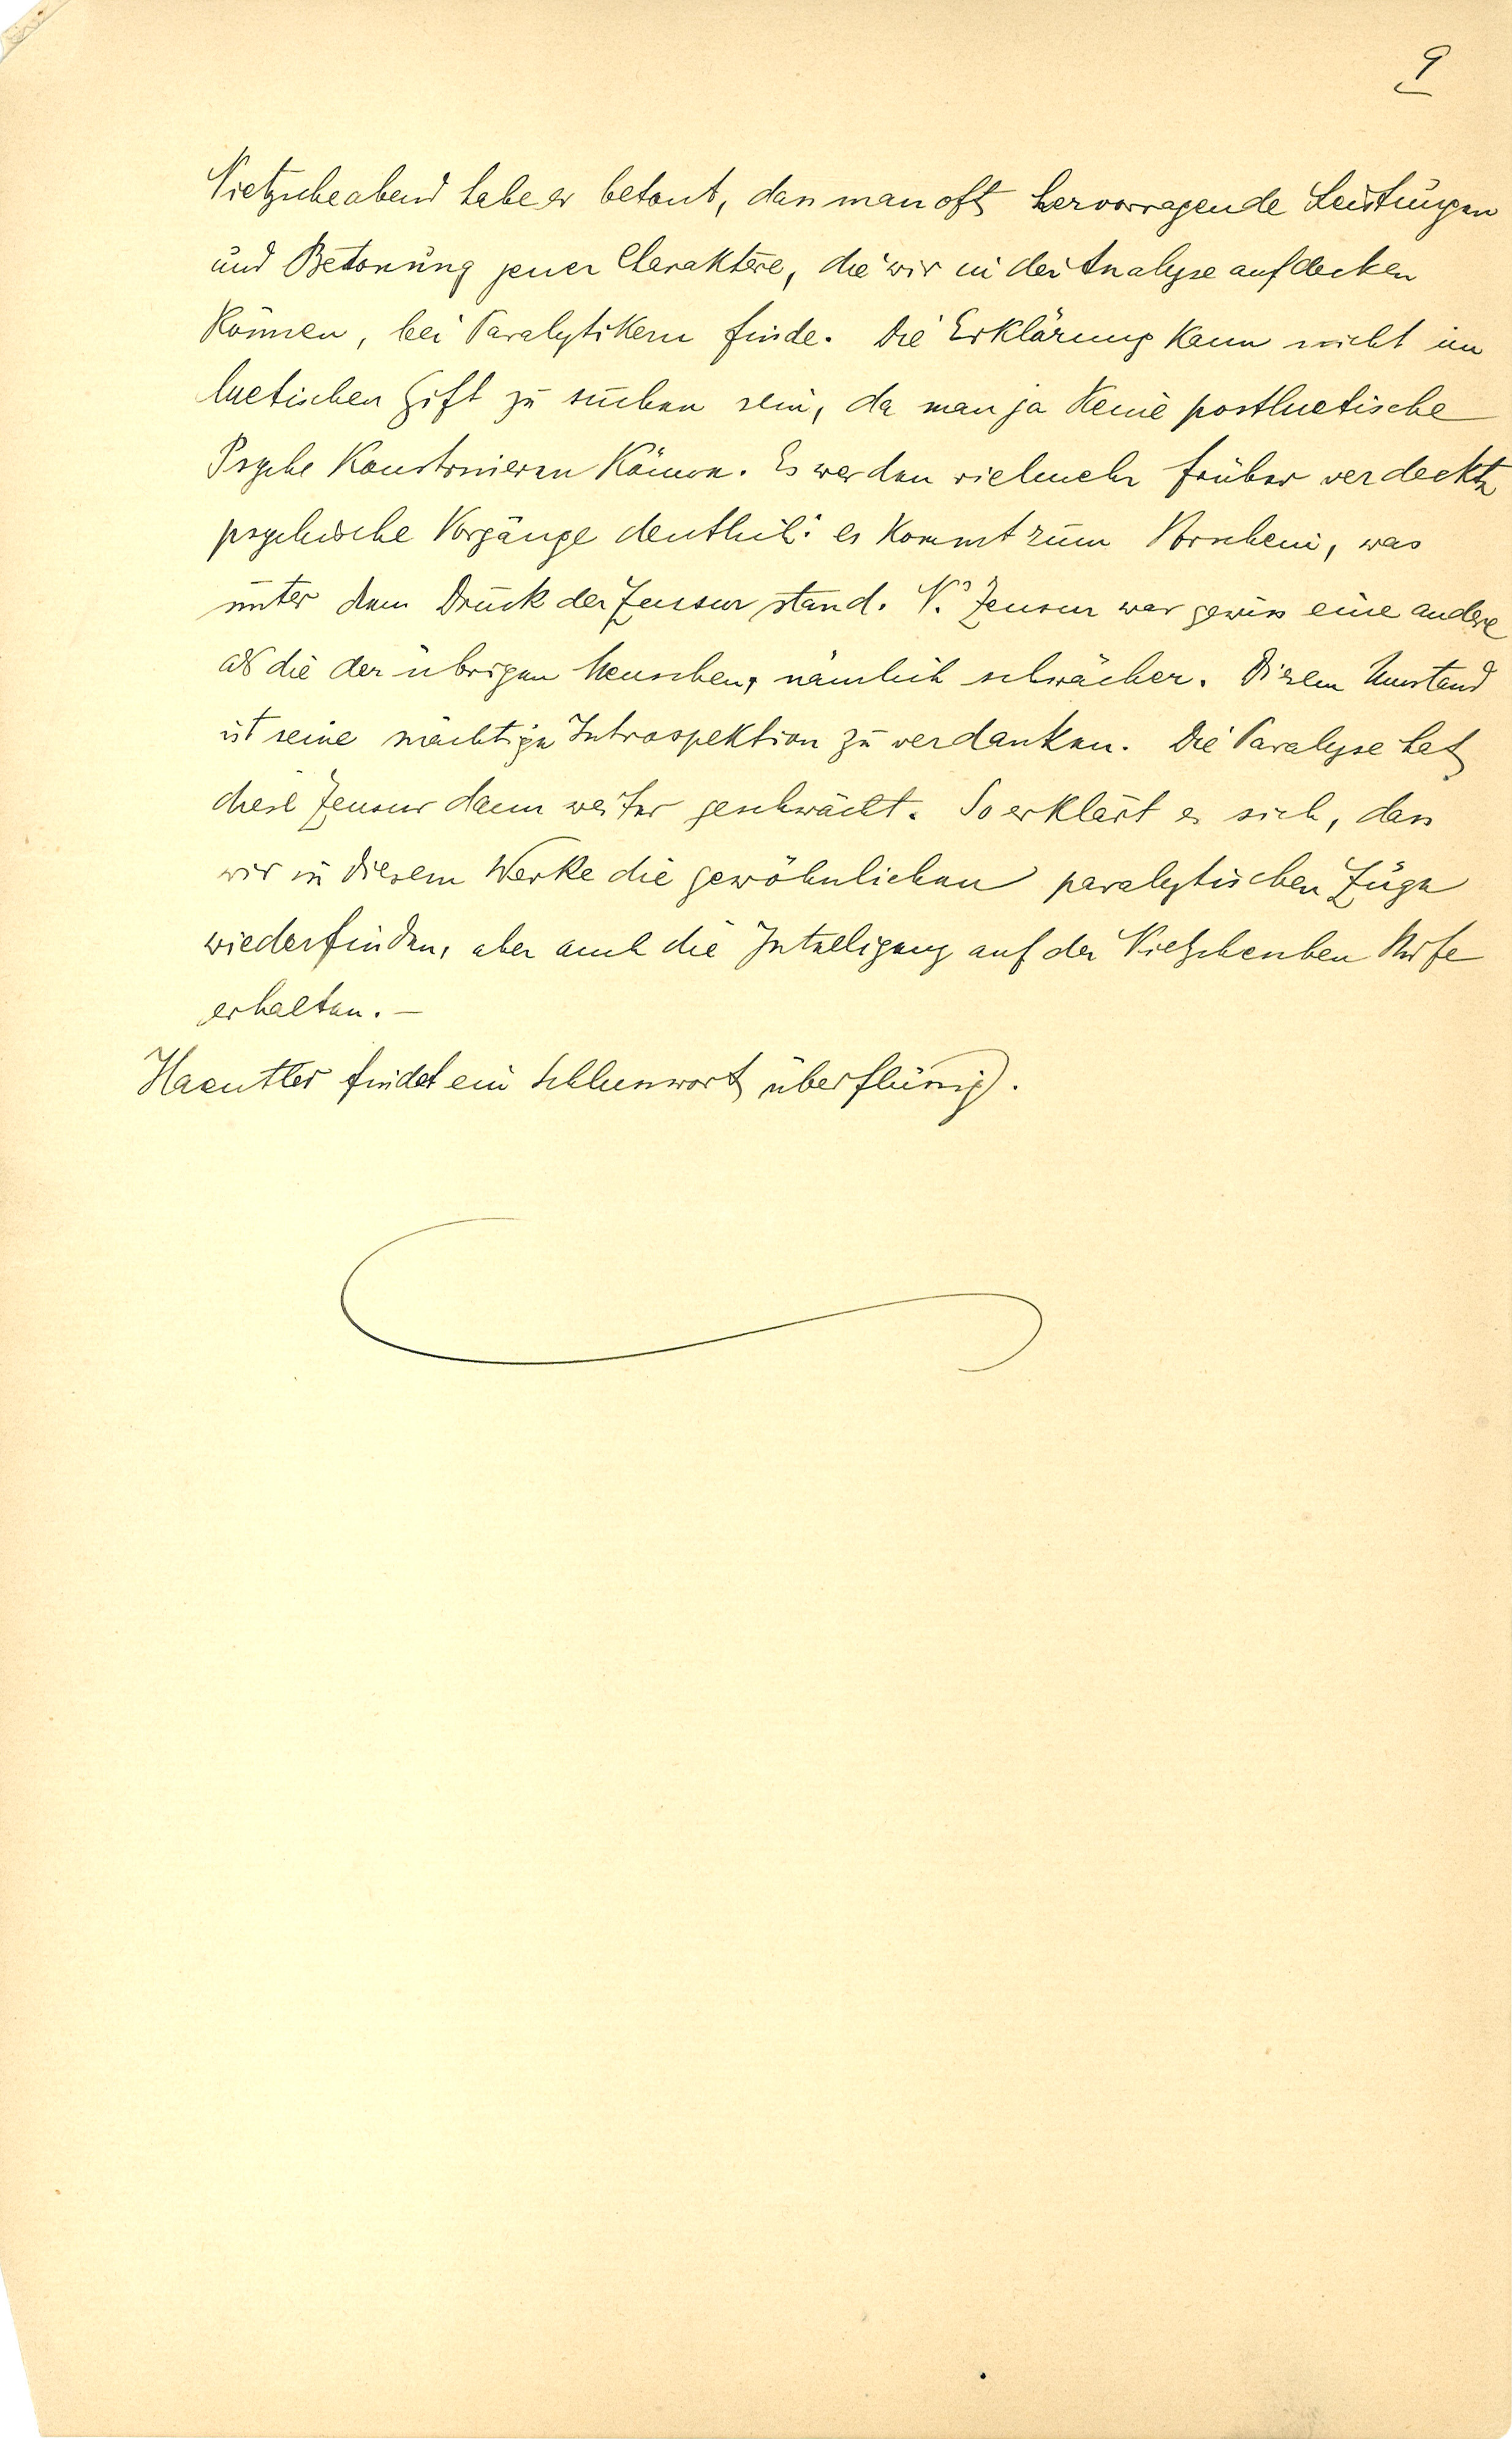 9
Nietzscheabend habe er betont, dass man oft hervorragende Leistungen
und Betonung jener Charaktere, die wir in der Analyse aufdecken
können, bei Paralytikern finde. Die Erklärung kann nicht im
luetischen Gift zu suchen sein, da man ja keine postluetische
Psyche konstruieren könne. Es werden vielmehr früher verdeckte
psychische Vorgänge deutlich: es kommt zum Vorschein, was
unter dem Druck der Zensur stand. N.s Zensur war gewiss eine andere
als die der übrigen Menschen, nämlich schwächer. Diesem Umstand
ist seine mächtige Introspektion zu verdanken. Die Paralyse hat
diese Zensur dann weiter geschwächt. So erklärt es sich, dass
wir in diesem Werke die gewöhnlichen paralytischen Züge
wiederfinden, aber auch die Intelligenz auf der Nietzscheschen Stufe
erhalten. —
Haeutler findet ein Schlusswort überflüssig.